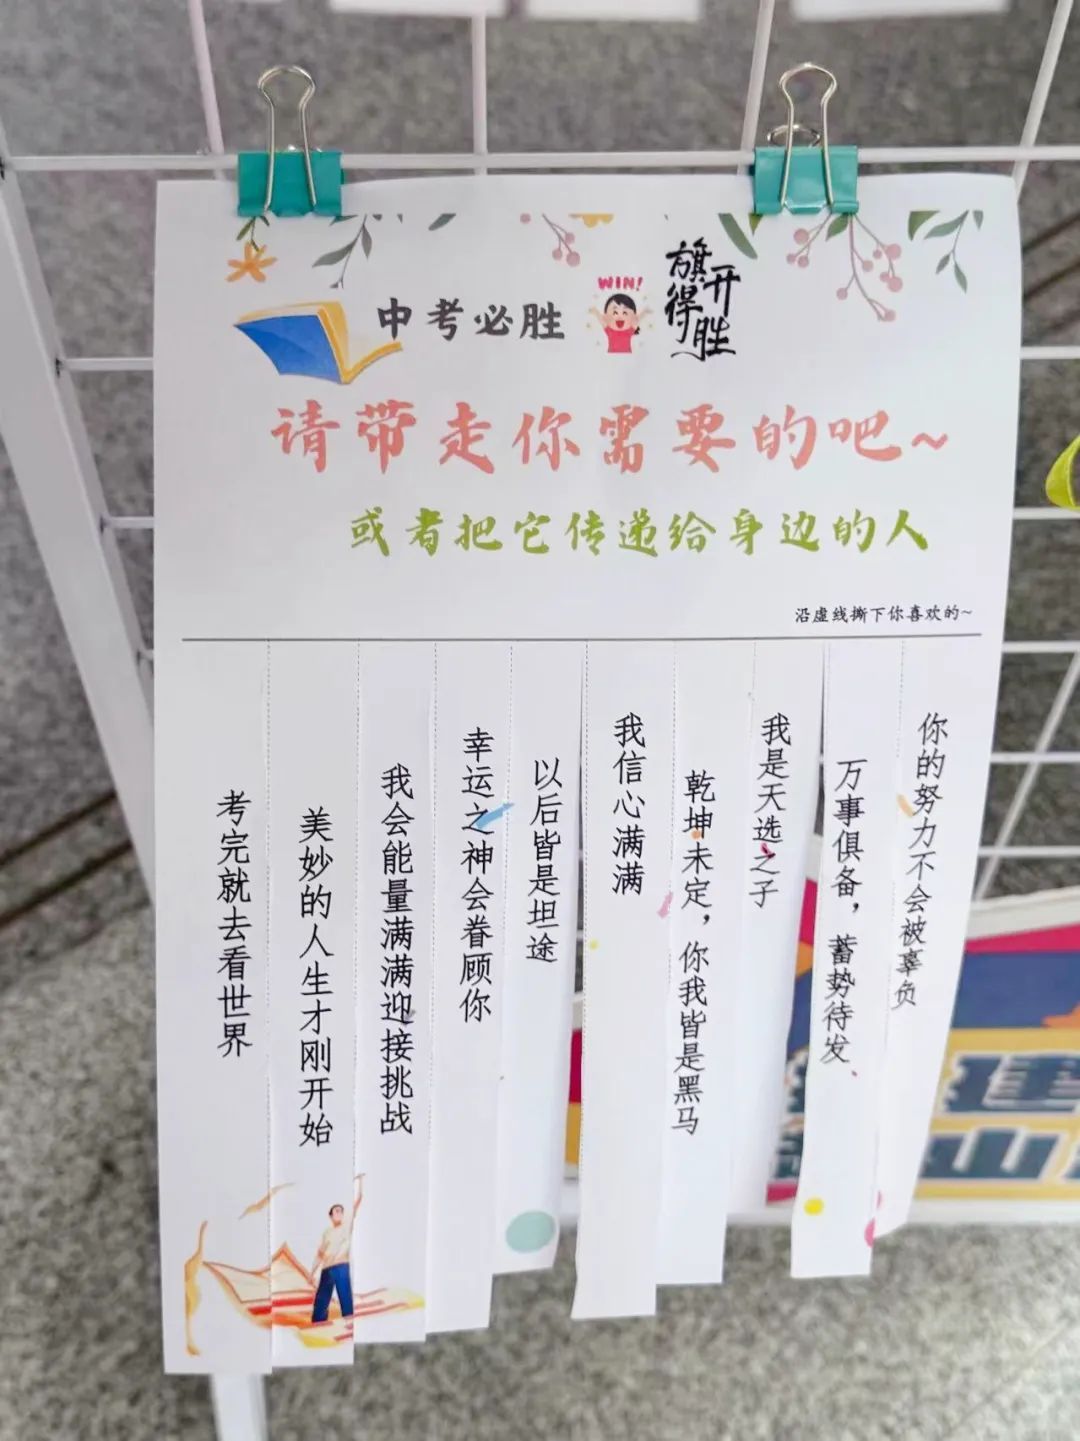 中考必胜
WIN!
旗开得胜
请带走你需要的吧~
或者把它传递给身边的人
沿虚线撕下你喜欢的~
考完就去看世界
美妙的人生才刚开始
我会能量满满迎接挑战
幸运之神会眷顾你
以后皆是坦途
我信心满满
乾坤未定，你我皆是黑马
我是天选之子
万事俱备，蓄势待发
你的努力不会被辜负
建
山